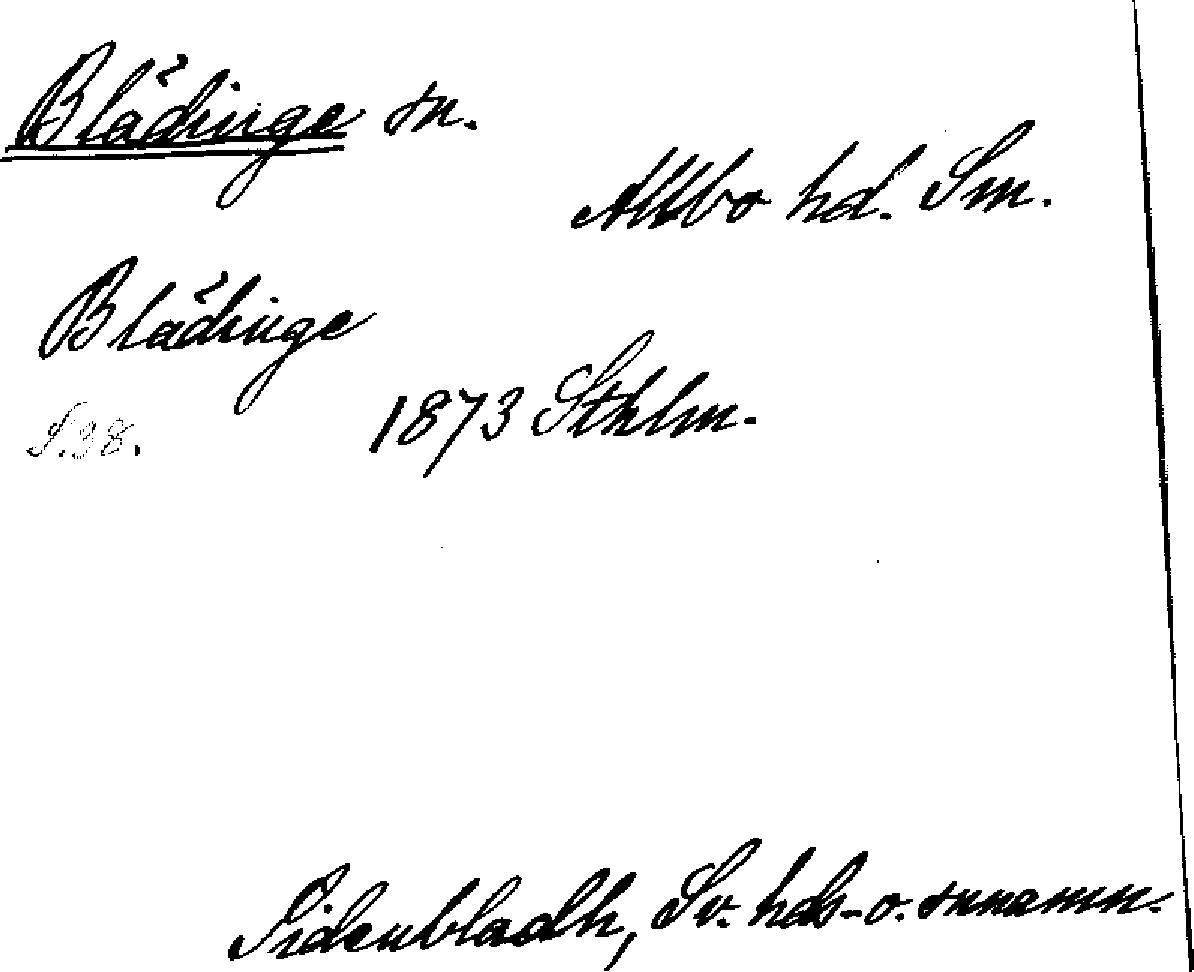 Blädinge sn.
Allbo hd. Sm.
Blädinge
S. 38. 1873 Sthlm.
Sidenbladh, Sv. hds- o. snnamn.